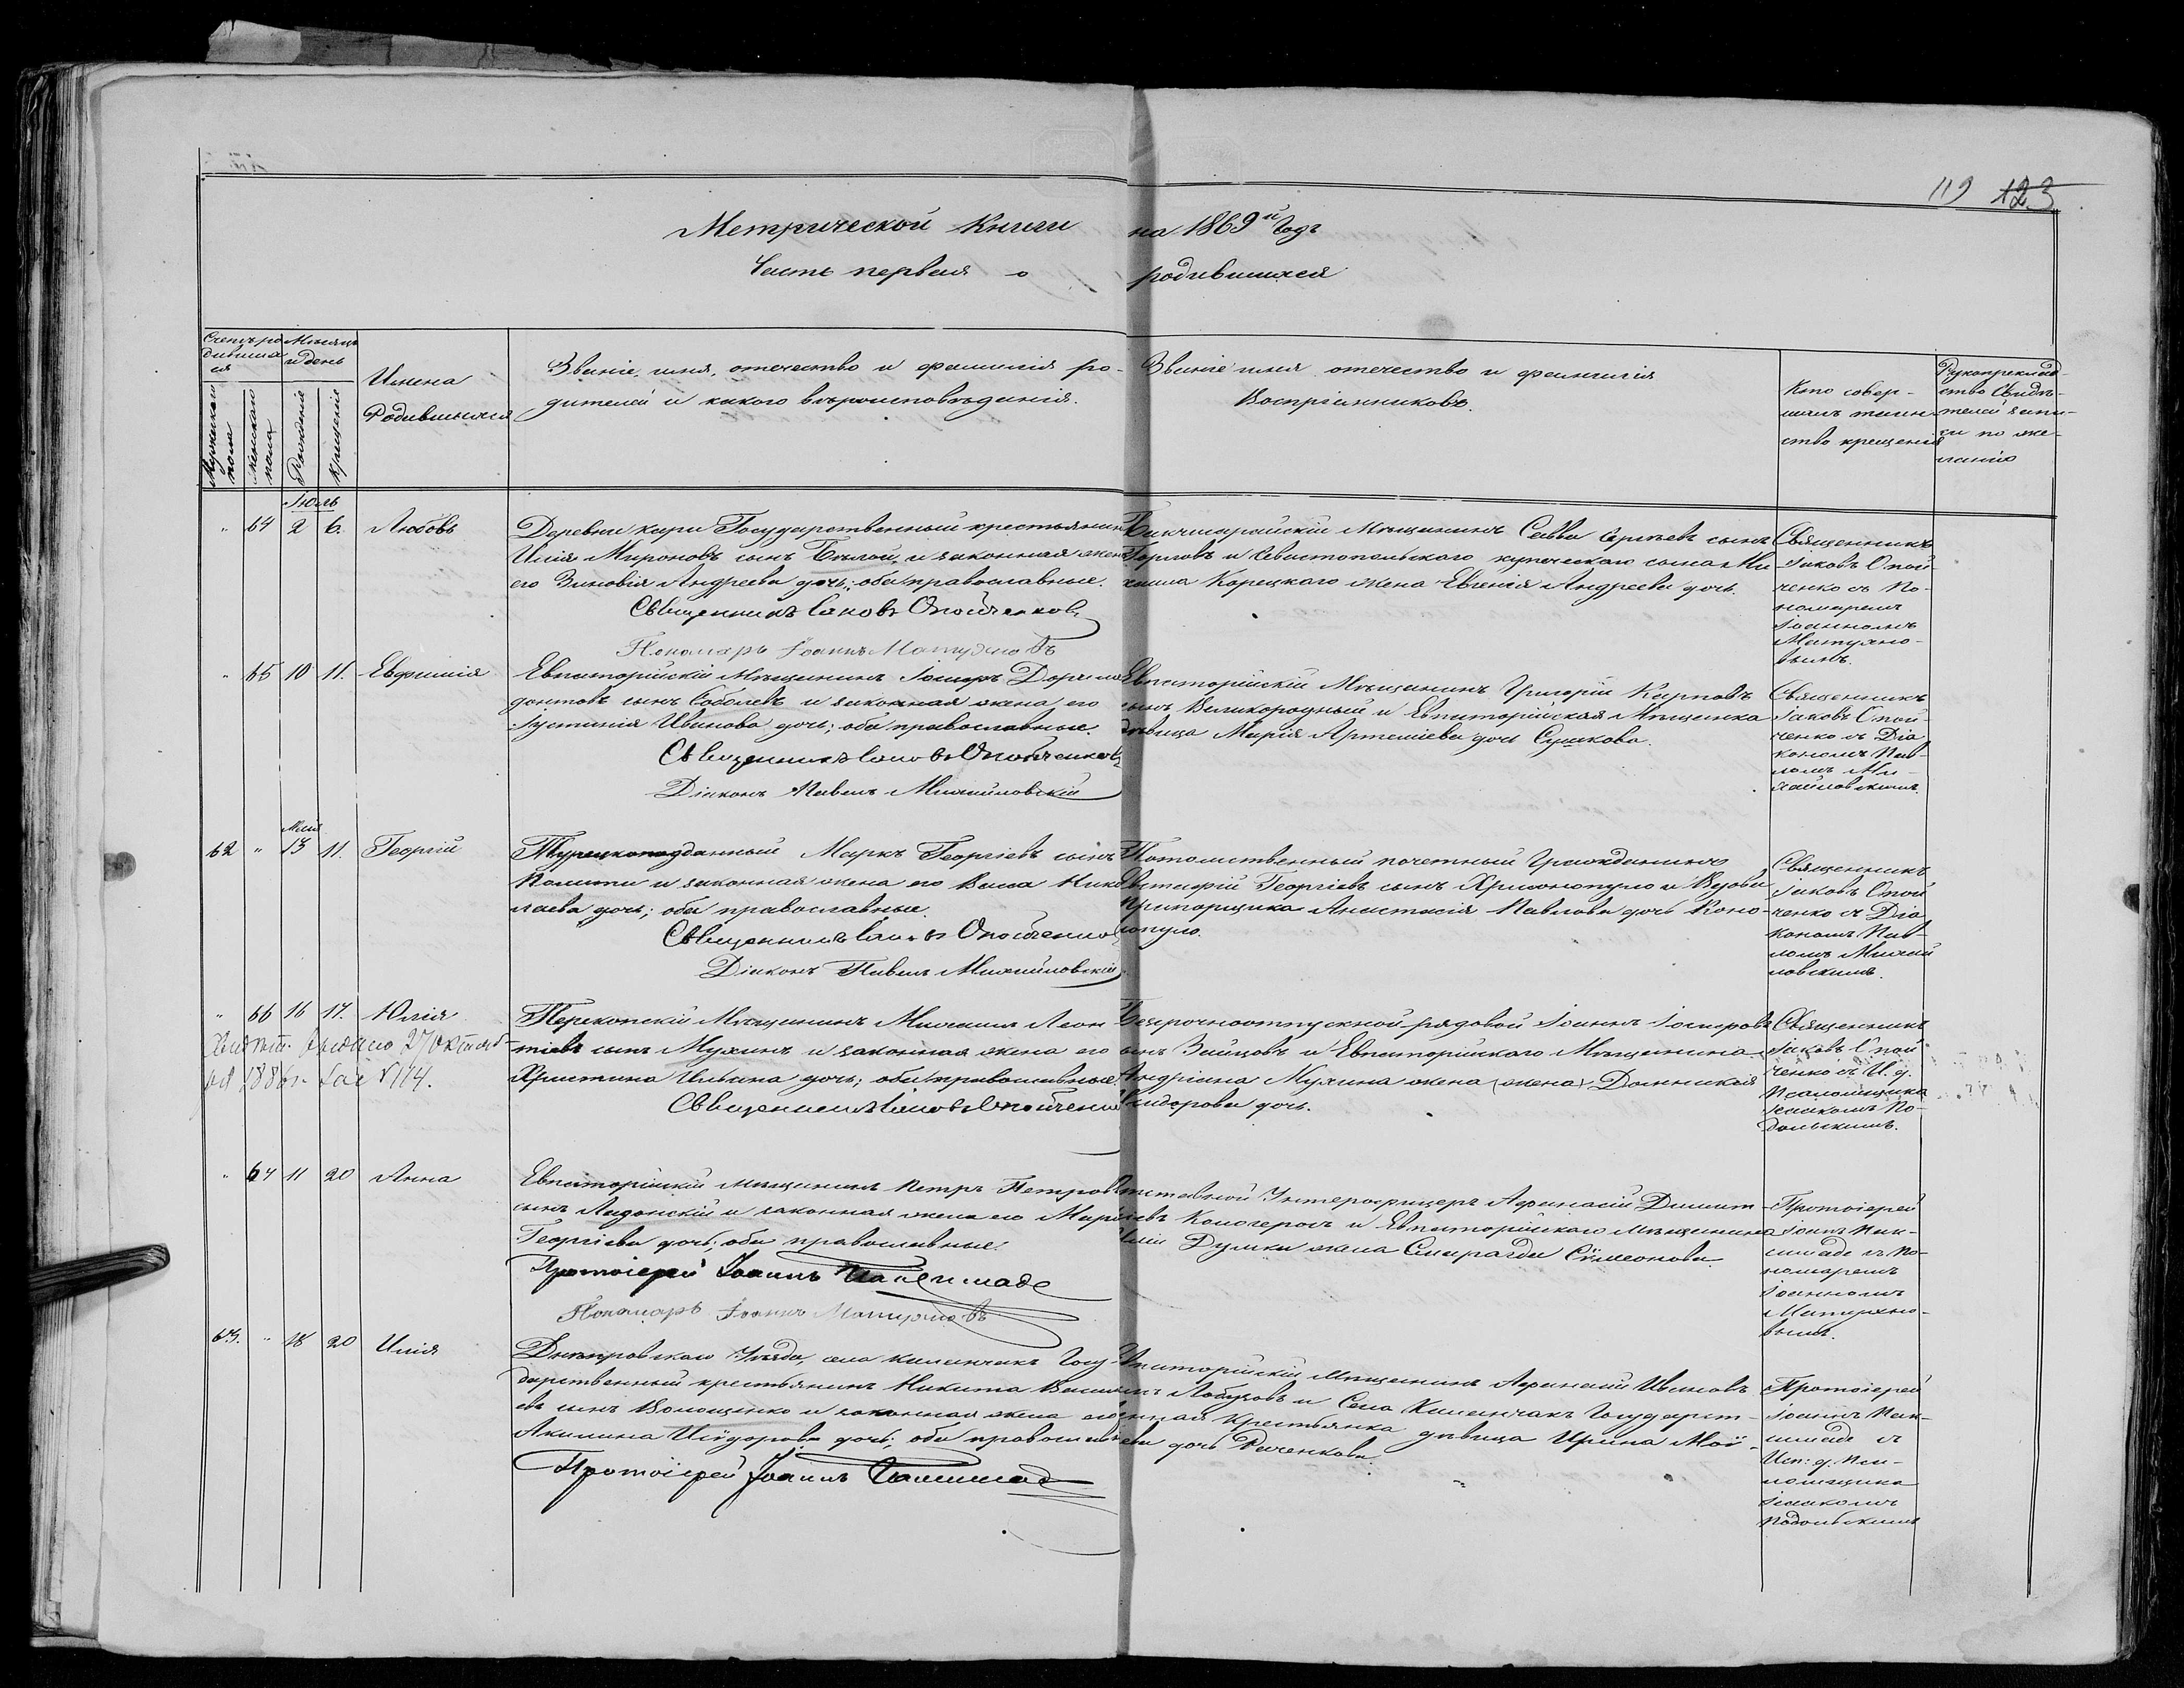 119 123
Метрической Книги на 1869й Годъ
Часть первая о родившихся
Счетъ ро-
дивших-
ся
Мѣсяцъ
и день
Мужескаго
пола
Женскаго
пола
Рожденія
Крещенія
Имена
Родившихся
Званіе, имя, отечество и фамилія ро-
дителей и какого вѣроисповѣданія.
Званіе имя отечество и фамилія
Воспріемниковъ.
Кто совер-
шалъ таин-
ство крещенія
Рукоприклад-
ство свидѣ-
телей запи-
си по же-
ланію
Іюль
" 64 2 6. Любовь
Деревни Кари Государственный крестьянинъ
Илія Мироновъ сынъ Бѣлой, и законная жена
его Зиновія Андреева дочь; оба православные.
Священникъ Іаковъ Опойченковъ
Пономарь Іоаннъ Матушовъ
Бахчисарайскій Мѣщанинъ Савва Сергѣевъ сынъ
и Севастопольскаго купеческаго сына Ми
хаила Корецкаго жена Евгенія Андреева дочь.
Священникъ
Іаковъ Опой
ченко съ По-
номаремъ
Іоанномъ
" 65 10 11. Евфимія
Евпаторійскій Мѣщанинъ Іосифъ
сынъ Соболевъ и законная жена его
Іустинія Иванова дочь; оба православные.
Священникъ Іаковъ Опойченковъ
Діаконъ Павелъ Михайловскій
Евпаторійскій Мѣщанинъ Григорій Карповъ
сынъ Великородный и Евпаторійская Мѣщанка
дѣвица Марія Артеміева дочь Сушкова.
Священникъ
Іаковъ Опой-
ченко съ Діа
кономъ Пав-
ломъ Ми-
хайловскимъ.
62 " 13 11. Георгій
Турецкоподданный Маркъ Георгіевъ сынъ
Полити и законная жена его Васса Нико
лаева дочь; оба православные.
Священникъ Іаковъ Опойченковъ
Діаконъ Павелъ Михайловскій
Потомственный почетный Гражданинъ
Георгіевъ сынъ Хрисонопуло и Вдова
прапорщика Анастасія Павлова дочь Коно-
опуло.
Священникъ
Іаковъ Опой
ченко съ Діа
кономъ Пав-
ломъ Михай
ловскимъ.
" 66 16 17. Юлія
Свидѣт. выдано 27 октяб-
ря 1886 г. за № 114.
Перекопскій Мѣщанинъ Михаилъ Леон
тіевъ сынъ Мухинъ и законная жена его
Христина Ильина дочь; оба православные.
Священникъ Іаковъ Опойченко
Безсрочноотпускной рядовой Іоаннъ Іосифовъ
сынъ Зайцовъ и Евпаторійскаго Мѣщанина
Андріана Мухина жена (жена) Домникія
Сидорова дочь.
Священникъ
Іаковъ Опой
ченко съ И. д.
Псаломщика
Исаакомъ По-
дольскимъ.
" 67 11 20 Анна
Евпаторійскій мѣщанинъ Петръ Петровъ
сынъ Лидонскій и законная жена его Марія
Георгіева дочь; оба православные.
Протоіерей Іоаннъ Пакшмаде
Пономарь Іоаннъ
Отставной Унтерофицеръ Афанасій Димит-
ріевъ Кологеросъ и Евпаторійскаго мѣщанина
Иліи Думки жена Смарагда Сѵмеонова.
Протоіерей
Іоаннъ Пак-
шмаде съ По-
номаремъ
Іоанномъ
63. " 18 20 Илія
Днѣпровскаго Уѣзда, села Каланчакъ Госу-
дарственный крестьянинъ Никита Василь
евъ сынъ Волощенко и законная жена его
Акилина Исидорова дочь; оба православные
Протоіерей Іоаннъ Пакшмаде
Евпаторійскій Мѣщанинъ Афанасій Ивановъ
сынъ Лобузовъ и Села Каланчакъ Государст-
венная Крестьянка дѣвица Ирина Мои-
сеева дочь Раченкова.
Протоіерей
Іоаннъ Пак-
шмаде съ
Исп: д. Пса-
ломщика
Исаакомъ
Подольскимъ